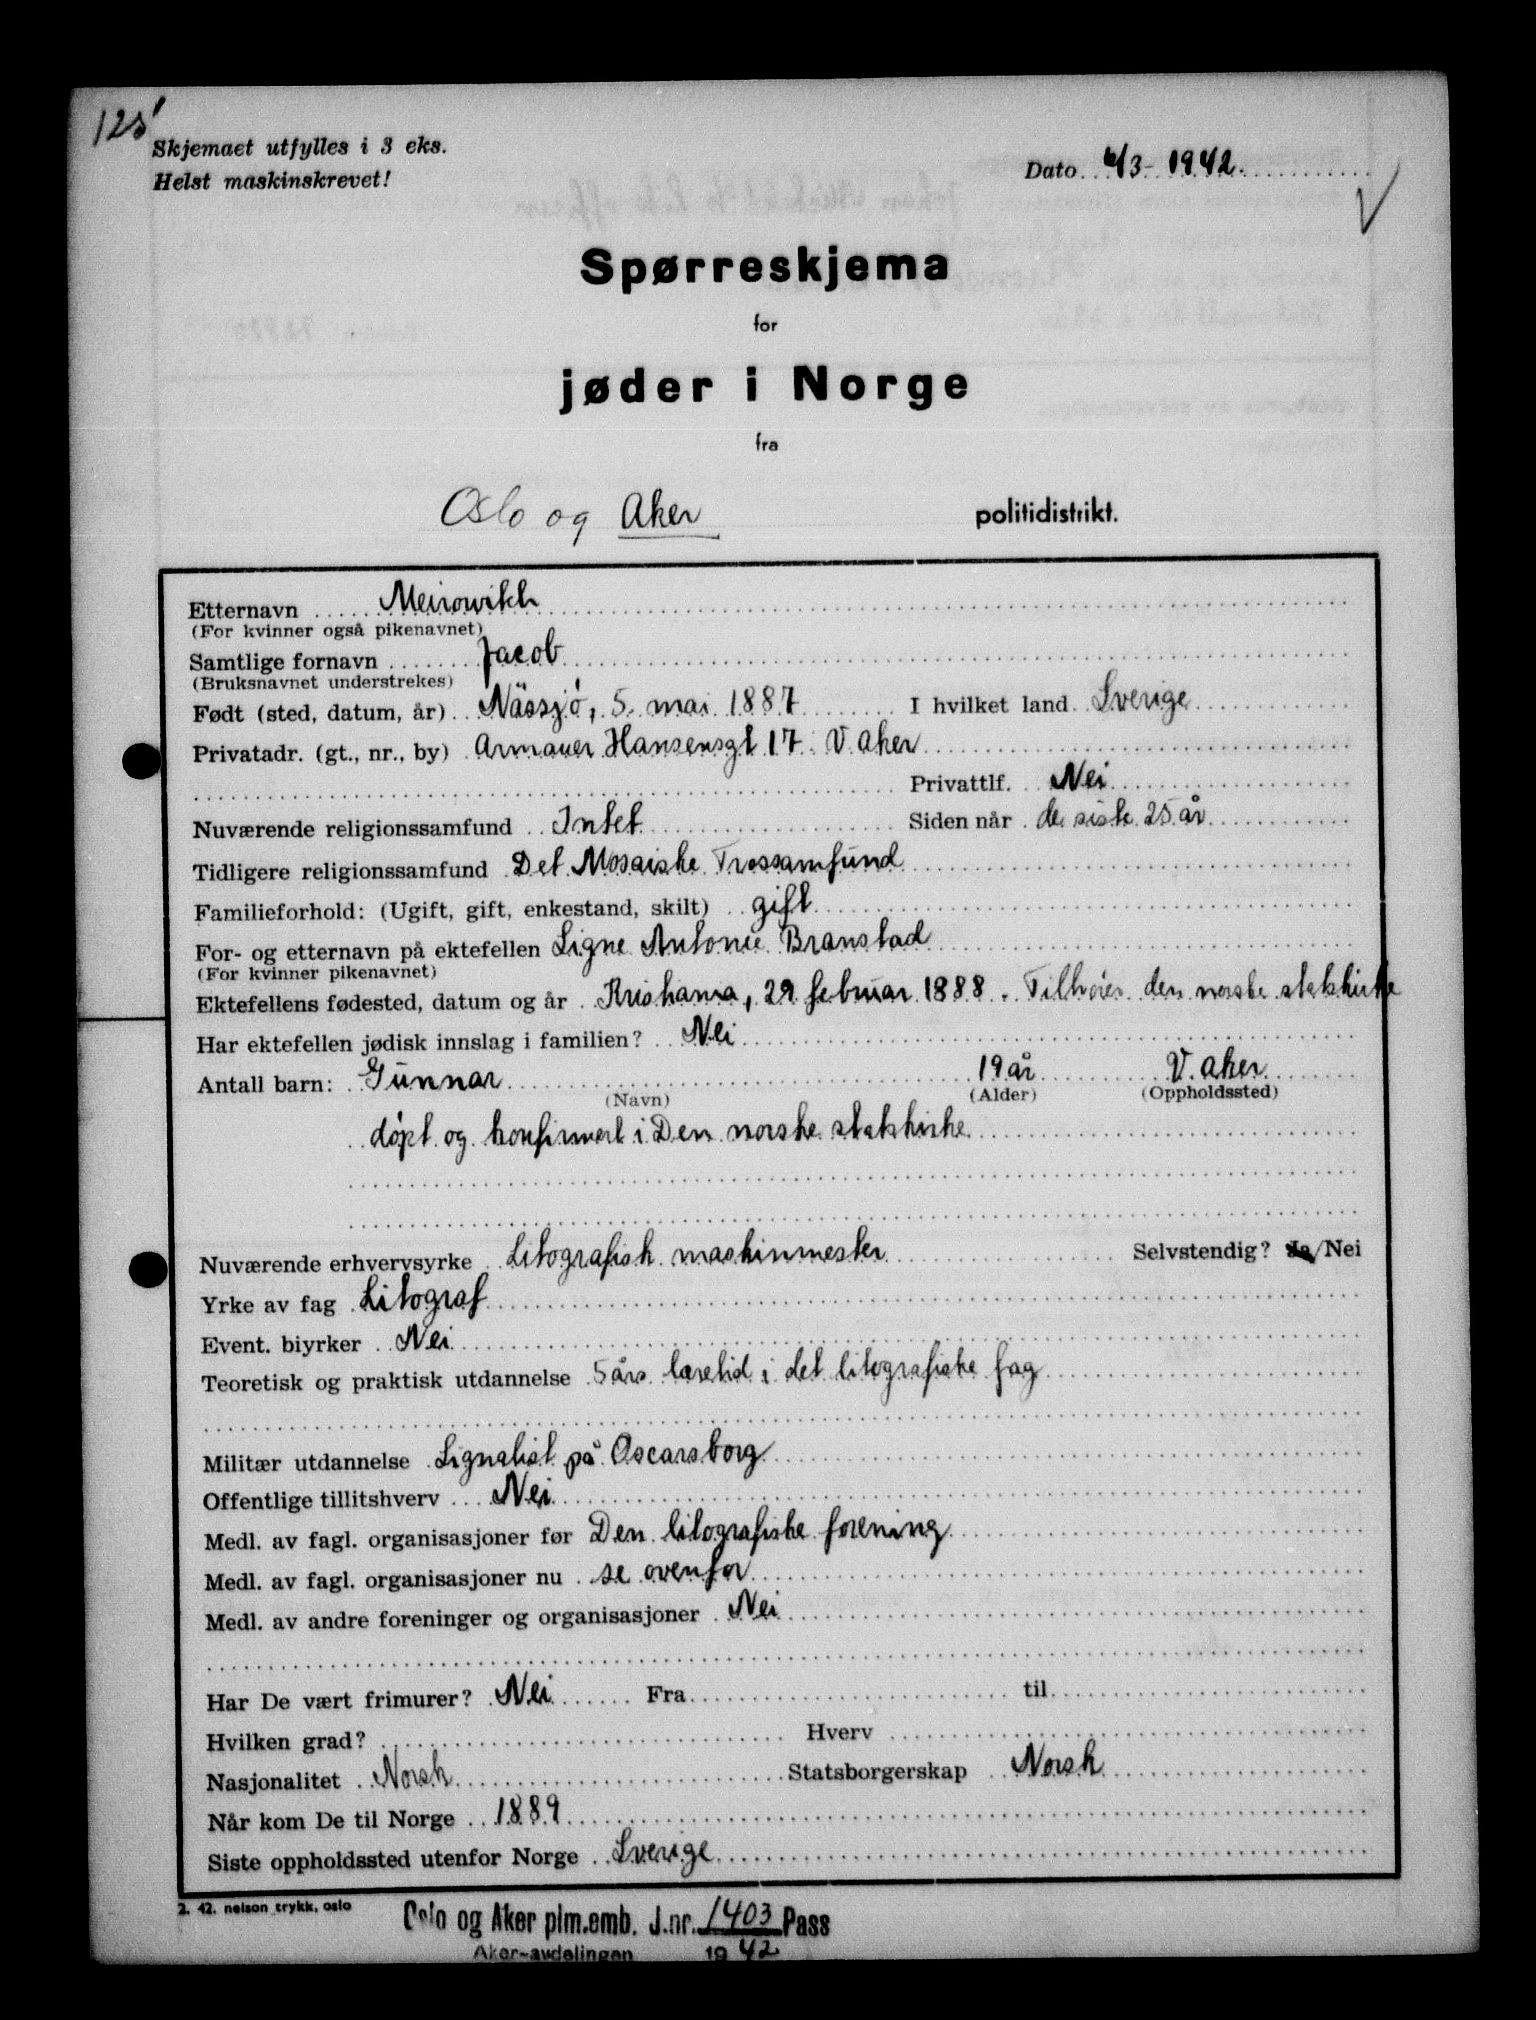 125
Skjemaet utfylles i 3 eks.
Helst maskinskrevet!
Dato 6/3-1942.
Spørreskjema
for
jøder i Norge
fra
Oslo og Aker politidistrikt.
Etternavn Meirowikh
(For kvinner også pikenavnet)
Samtlige fornavn Jacob
(Bruksnavnet understrekes)
Født (sted, datum, år) Nässjö, 5. mai 1887 I hvilket land Sverige
Privatadr. (gt., nr., by) Armauer Hansensgt 17. V. Aker
Privattlf. Nei
Nuværende religionssamfund Intet Siden når de siste 25 år
Tidligere religionssamfund Det Mosaiske Trossamfund
Familieforhold: (Ugift, gift, enkestand, skilt) gift
For- og etternavn på ektefellen Signe Antonie Branstad
(For kvinner pikenavnet)
Ektefellens fødested, datum og år Kristiania, 29 februar 1888. Tilhører den norske statskirke
Har ektefellen jødisk innslag i familien? Nei
Antall barn: Gunnar 19 år V. Aker
(Navn) (Alder) (Oppholdssted)
døpt og konfirmert i Den norske statskirke
Nuværende erhvervsyrke Litografisk maskinmester Selvstendig? Ja/Nei
Yrke av fag Litograf
Event. biyrker Nei
Teoretisk og praktisk utdannelse 5 års læretid i det litografiske fag
Militær utdannelse Signalist på Oscarsborg
Offentlige tillitshverv Nei
Medl. av fagl. organisasjoner før Den litografiske forening
Medl. av fagl. organisasjoner nu se ovenfor
Medl. av andre foreninger og organisasjoner Nei
Har De vært frimurer? Nei Fra til
Hvilken grad? Hverv
Nasjonalitet Norsk Statsborgerskap Norsk
Når kom De til Norge 1889
Siste oppholdssted utenfor Norge Sverige
2. 42. nelson trykk, oslo
Oslo og Aker plm.emb. J.nr. 1403 Pass
Aker-avdelingen 1942